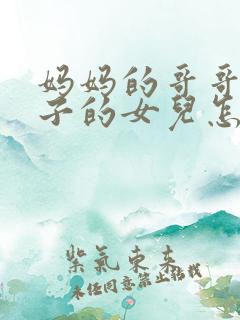 妈妈的哥哥
子的女兒怎
紫氣東来
未经同意禁止拈我